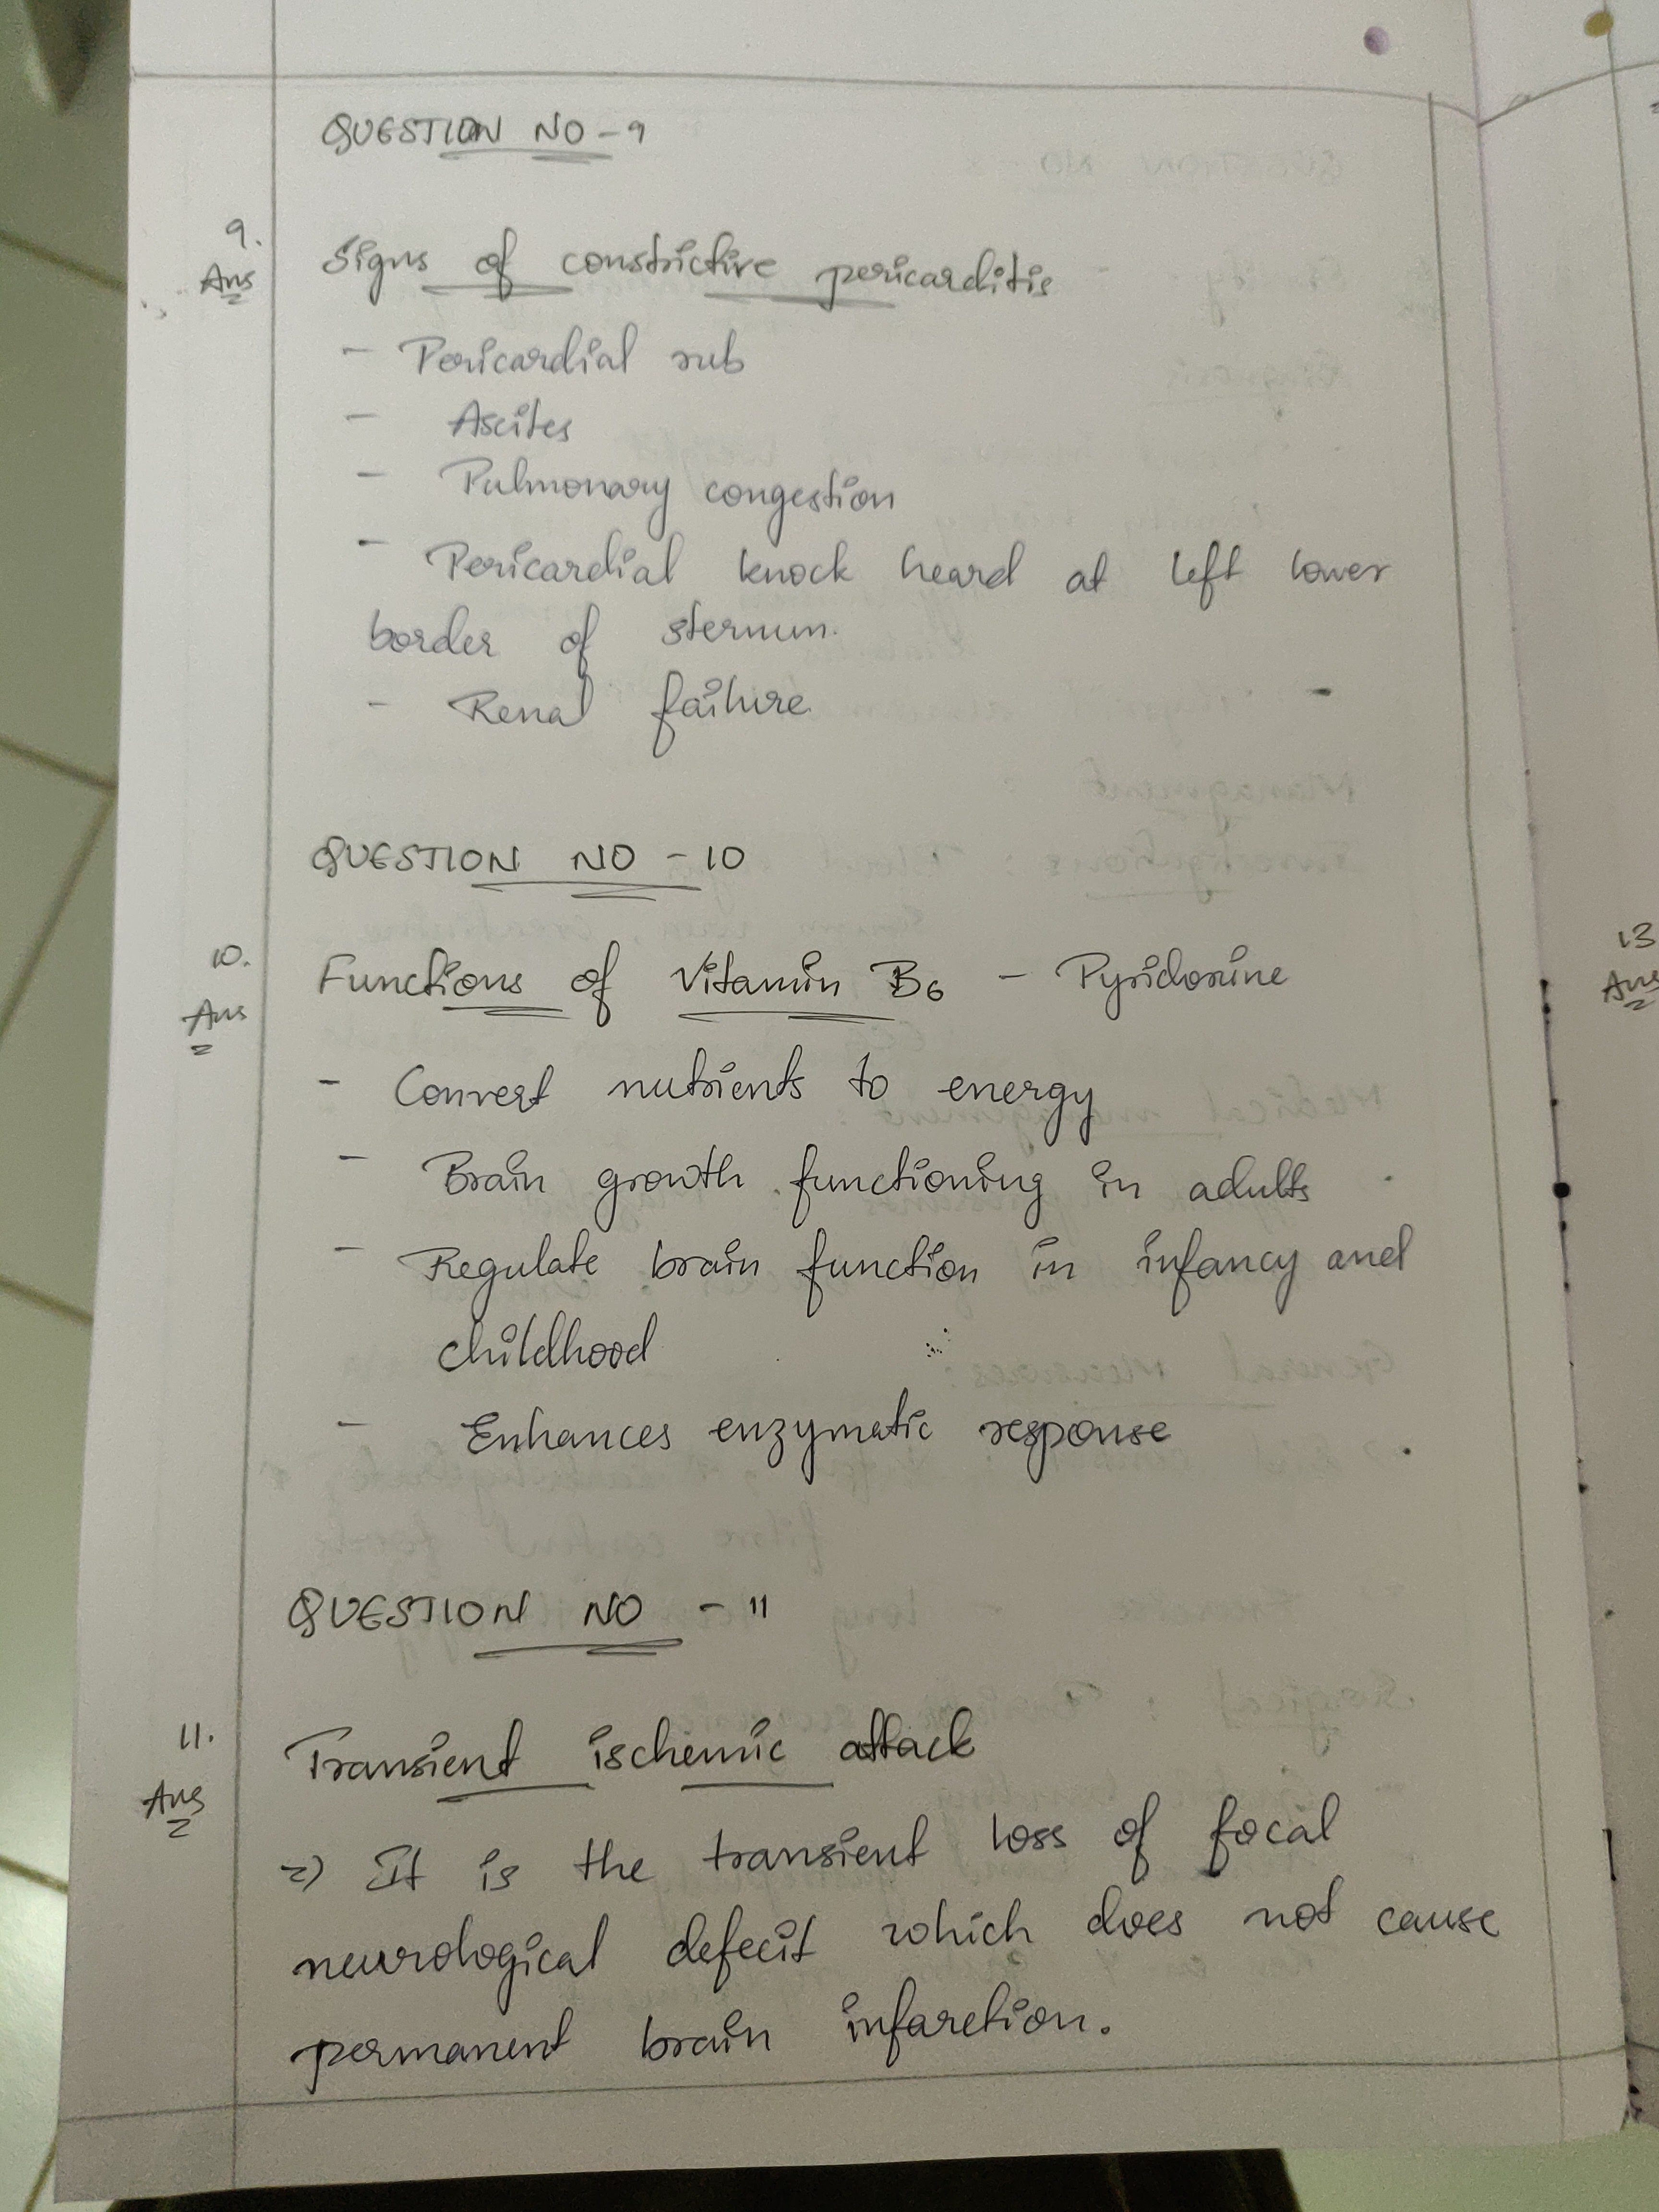 QUESTION NO - 9
9.
Ans
Signs of constrictive pericarditis
- Pericardial rub
- Ascites
- Pulmonary congestion
- Pericardial knock heard at left lower
border of sternum.
- Renal failure
QUESTION NO - 10
10.
Ans
Functions of Vitamin B6 - Pyridoxine
- Convert nutrients to energy
- Brain growth functioning in adults
- Regulate brain function in infancy and
childhood
- Enhances enzymatic response
QUESTION NO - 11
11.
Ans
Transient ischemic attack
=) It is the transient loss of focal
neurological defecit which does not cause
permanent brain infarction.
13
Ans